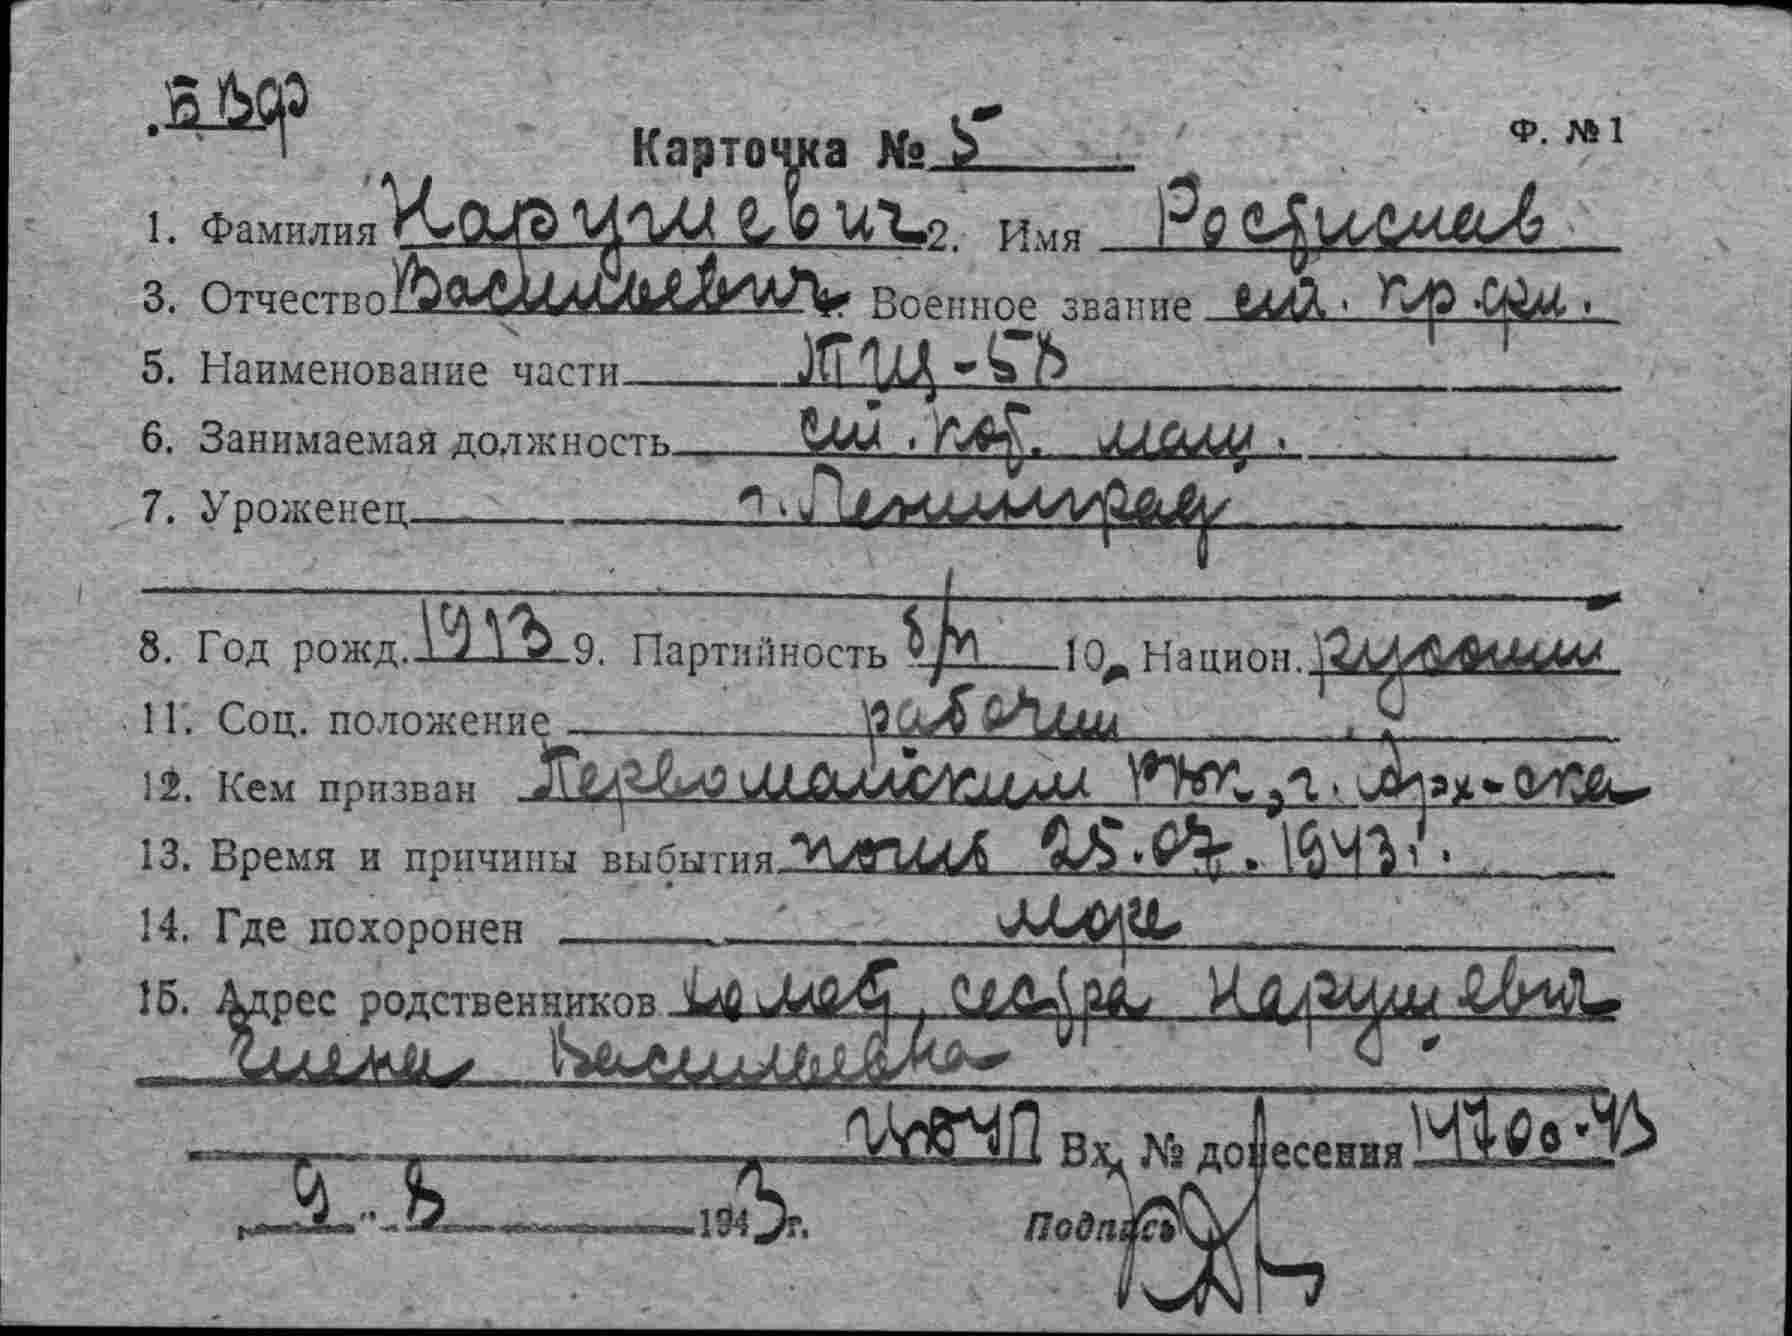 БВФ
Карточка № 5 Ф. № 1
1. Фамилия Нарушевич 2. Имя Ростислав
3. Отчество Васильевич 4. Военное звание ст. кр.фл.
5. Наименование части ТЩ-58
6. Занимаемая должность ст. коб. маш.
7. Уроженец г. Ленинград
8. Год рожд. 1913 9. Партийность б/п 10. Национ. русский
11. Соц. положение рабочий
12. Кем призван Первомайским РВК, г. Арх-ска
13. Время и причины выбытия погиб 25.07.1943 г.
14. Где похоронен море
15. Адрес родственников сестра Нарушевич
Елена Васильевна
Вх. № донесения 14700-43
„ 9 " 8 1943 г. Подпись